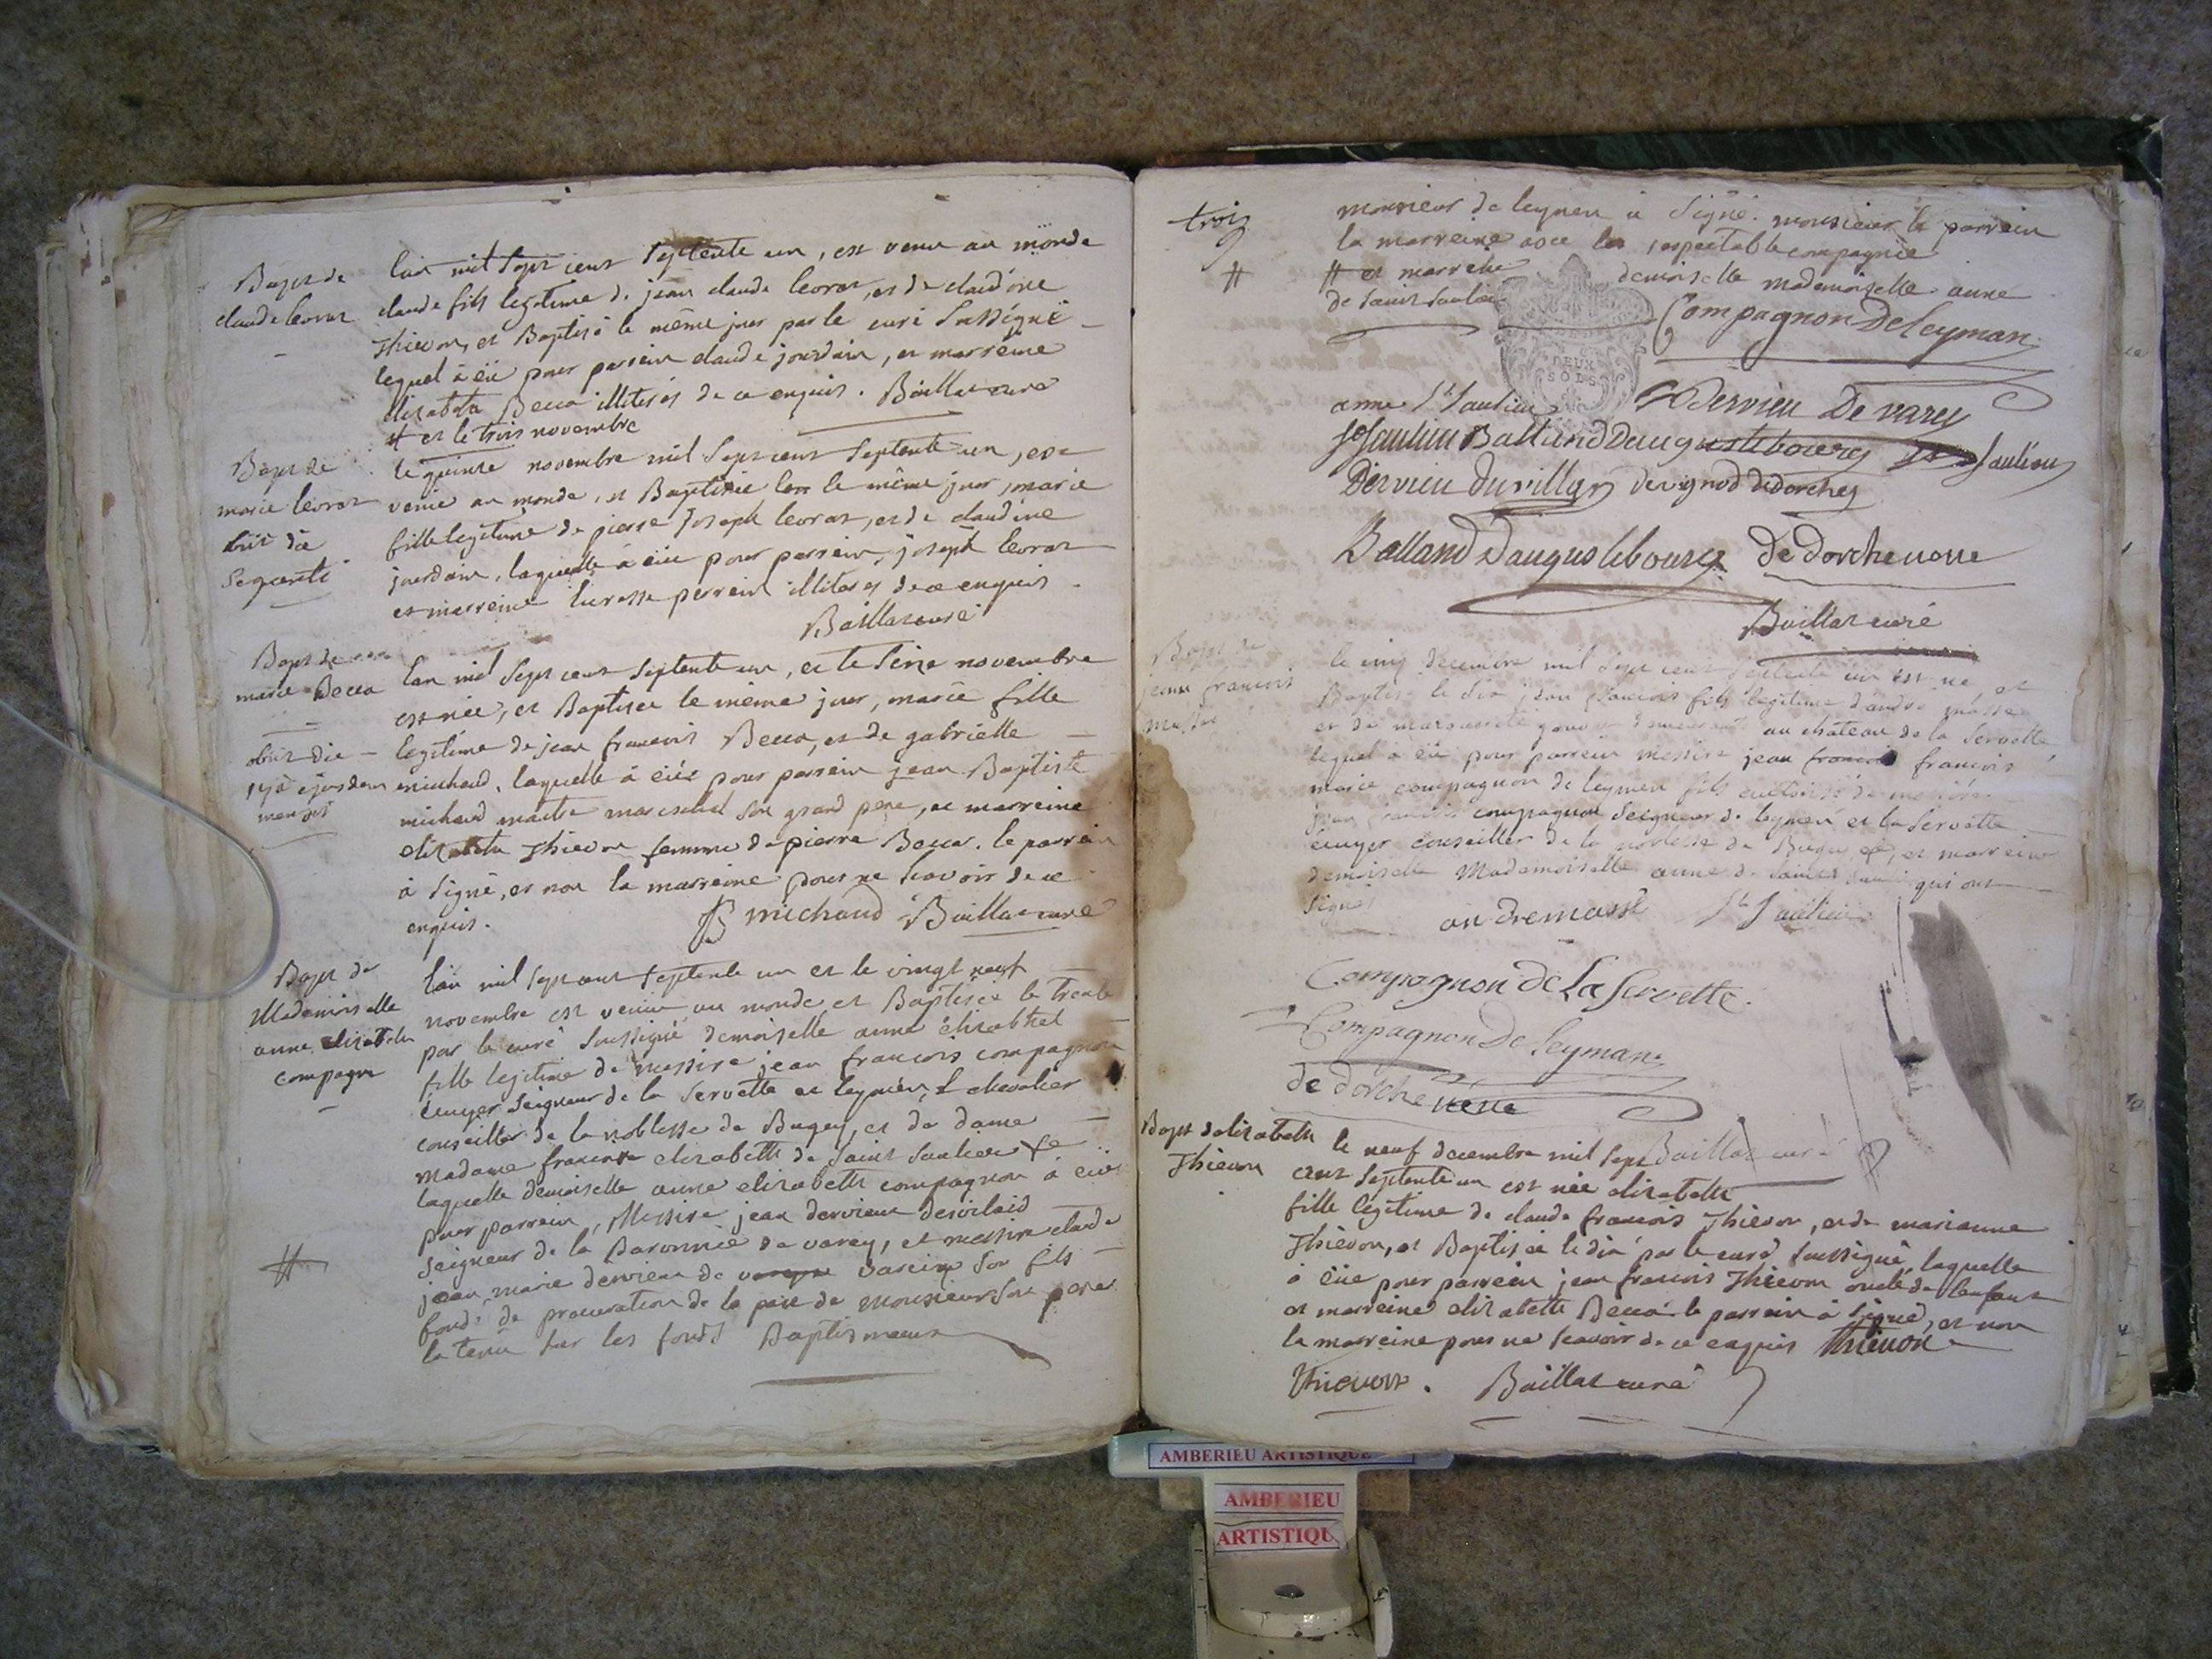 Bapt de
claude levrat
lan mil sept cent septente un, est venu au monde
claude fils legitime de jean claude levrat, et de claudine
thievon, et Baptisé le même jour par le curé soussigné
lequel à eü pour parrein claude jourdain, et marreine
elizabeth Becca illiterés de ce enquis. Baillat curé
# et le trois novembre
Bapt de
marie levrat
obiit die
sequenti
le quinze novembre mil sept cent septente un, est
venüe au monde, et Baptisée le même jour, marie
fille legitime de pierre joseph levrat, et de claudine
jourdain, laquelle à eüe pour parrein, joseph levrat
et marreine perrein illiteres de ce enquis
Baillat curé
Bapt de
marie Becca
obiit die
19a ejusdem
mensis
lan mil sept cent septente un, et le seize novembre
est née, et Baptisée le même jour, marie fille
legitime de jean francois Becca, et de gabrielle
michaud, laquelle à eüe pour parrein jean Baptiste
michaud maitre mareschal son grand pere, et marreine
elizabeth thievon femme de pierre Becca. le parrein
à signé, et non la marreine pour ne scavoir de ce
enquis.
B michaud Baillat curé
Bapt de
Mademoiselle
anne elizabeth
compagn
lan mil sept cent septente un et le vingt neuf
novembre est venüe au monde et Baptisée le trente
par le curé soussigné demoiselle anne elizabhet
fille legitime de messire jean francois compagnon
ecuyer seigneur de la servette et leymen, chevalier
conseiller de la noblesse de Bugey, et de dame
madame francoise elizabeth de saint saulieu
laquelle demoiselle anne elizabeth compagnon à eüe
pour parrein, Messire jean dervieux
seigneur de la Baronnie de varey, et messire claude
#
jean, marie dervieux de varein son fils
fondé de procuration de la part de monsieur son pere
la tenü sur les fonds Baptismaux
trois
monsieur de leymen à signé. monsieur le parrein
la marreine avec la respectable compagnie
#
# et marreine demoiselle mademoiselle anne
de saint saulieu
DEUX
SOLS
Compagnon De Leyman
anne St Saulieu Dervieu De varey
St Saulieu Balland Daugustebourg St Saulieu
Dervieu Duvillar devignod dedorches
Balland Daugustebourg de dorche
Baillat curé
Bapt de
jean francois
masse
le cinq decembre mil sept cent septente un est né, et
Baptisé le dit jean francois fils legitime dandré masse
et de marguerite demeurant au château de la servette
lequel à eü pour parrein messire jean francois
marie compagnon de leymen fils de messire
jean francois compagnon seigneur de leymen et la servette
ecuyer conseiller de la noblesse de Bugey, et marreine
demoiselle Mademoiselle anne de saint saulieu qui ont
signés
andremasse St Saulieu
Compagnon de La servette.
Compagnon De Leyman
de dorche
Baillat curé
Bapt delizabeth
thievon
le neuf decembre mil sept
cent septente un est née elizabeth
fille legitime de claude francois thievon, et de marianne
thievon, et Baptisée le dit par le curé soussigné, laquelle
à eüe pour parrein jean francois thievon oncle de lenfant
et marreine elizabeth Becca le parrein a signé, et non
la marreine pour ne scavoir de ce enquis thievon
thievon. Baillat curé
AMBERIEU ARTISTIQUE
AMBERIEU
ARTISTIQU